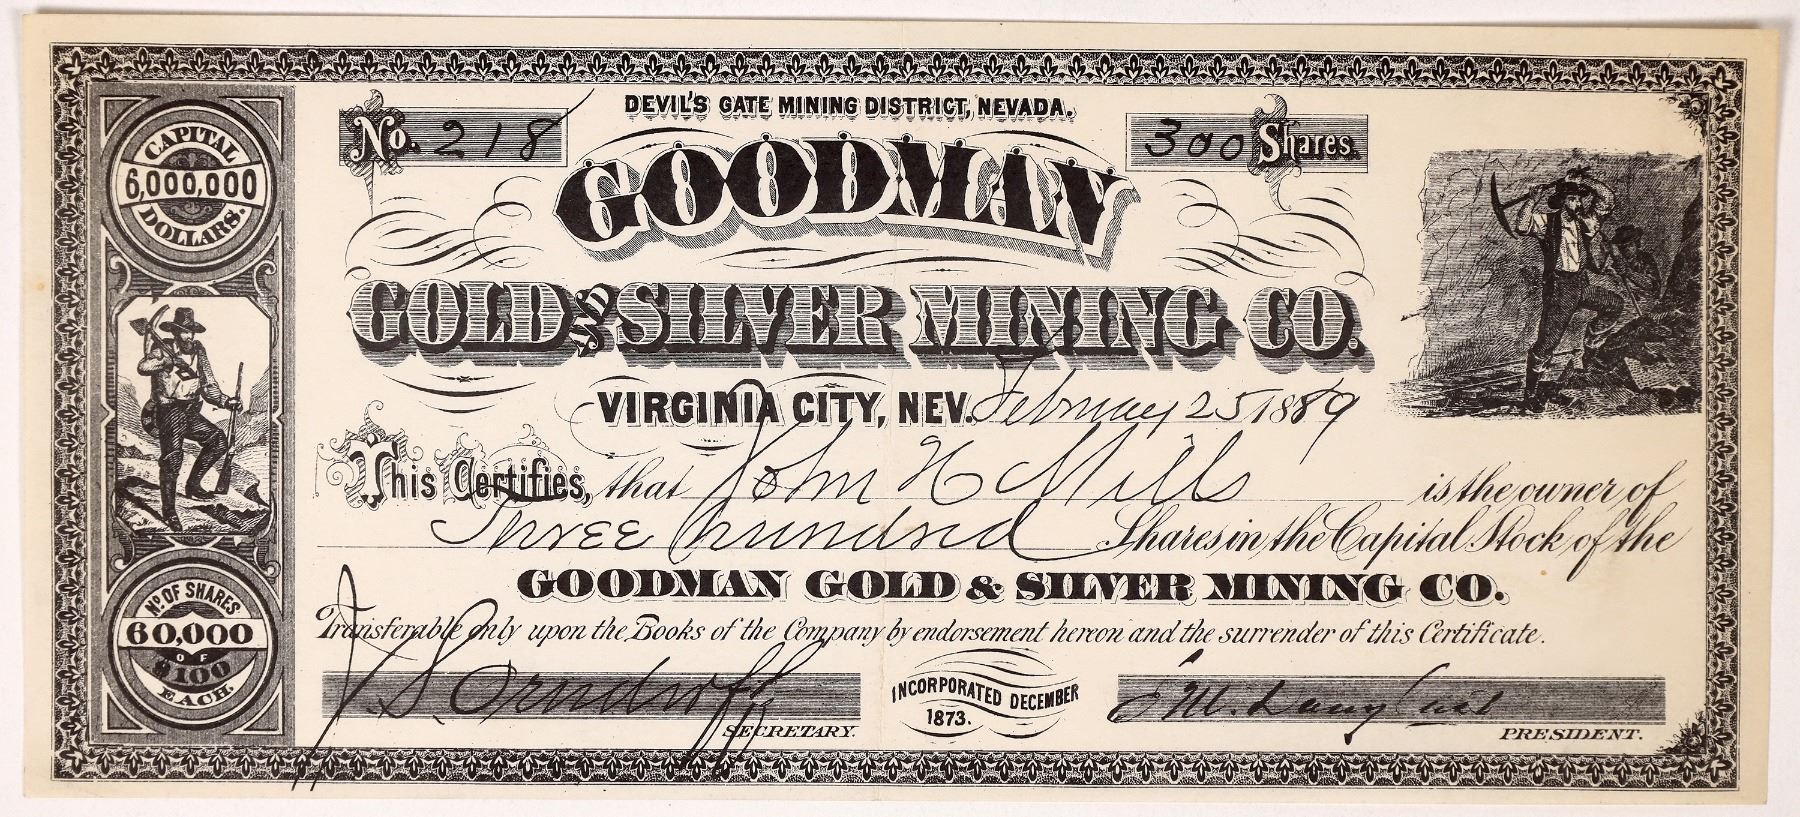 DEVIL'S GATE MINING DISTRICT, NEVADA.
No. 218
300 Shares.
GOODMAN
GOLD AND SILVER MINING CO.
VIRGINIA CITY, NEV. February 25 1889
This Certifies, that John H Mills is the owner of
Three hundred Shares in the Capital Stock of the
GOODMAN GOLD & SILVER MINING CO.
Transferable only upon the Books of the Company by endorsement hereon and the surrender of this Certificate.
J. S. Orndorff
SECRETARY.
INCORPORATED DECEMBER
1873.
PRESIDENT.
CAPITAL
6,000,000
DOLLARS.
No. OF SHARES
60,000
OF
$100
EACH.